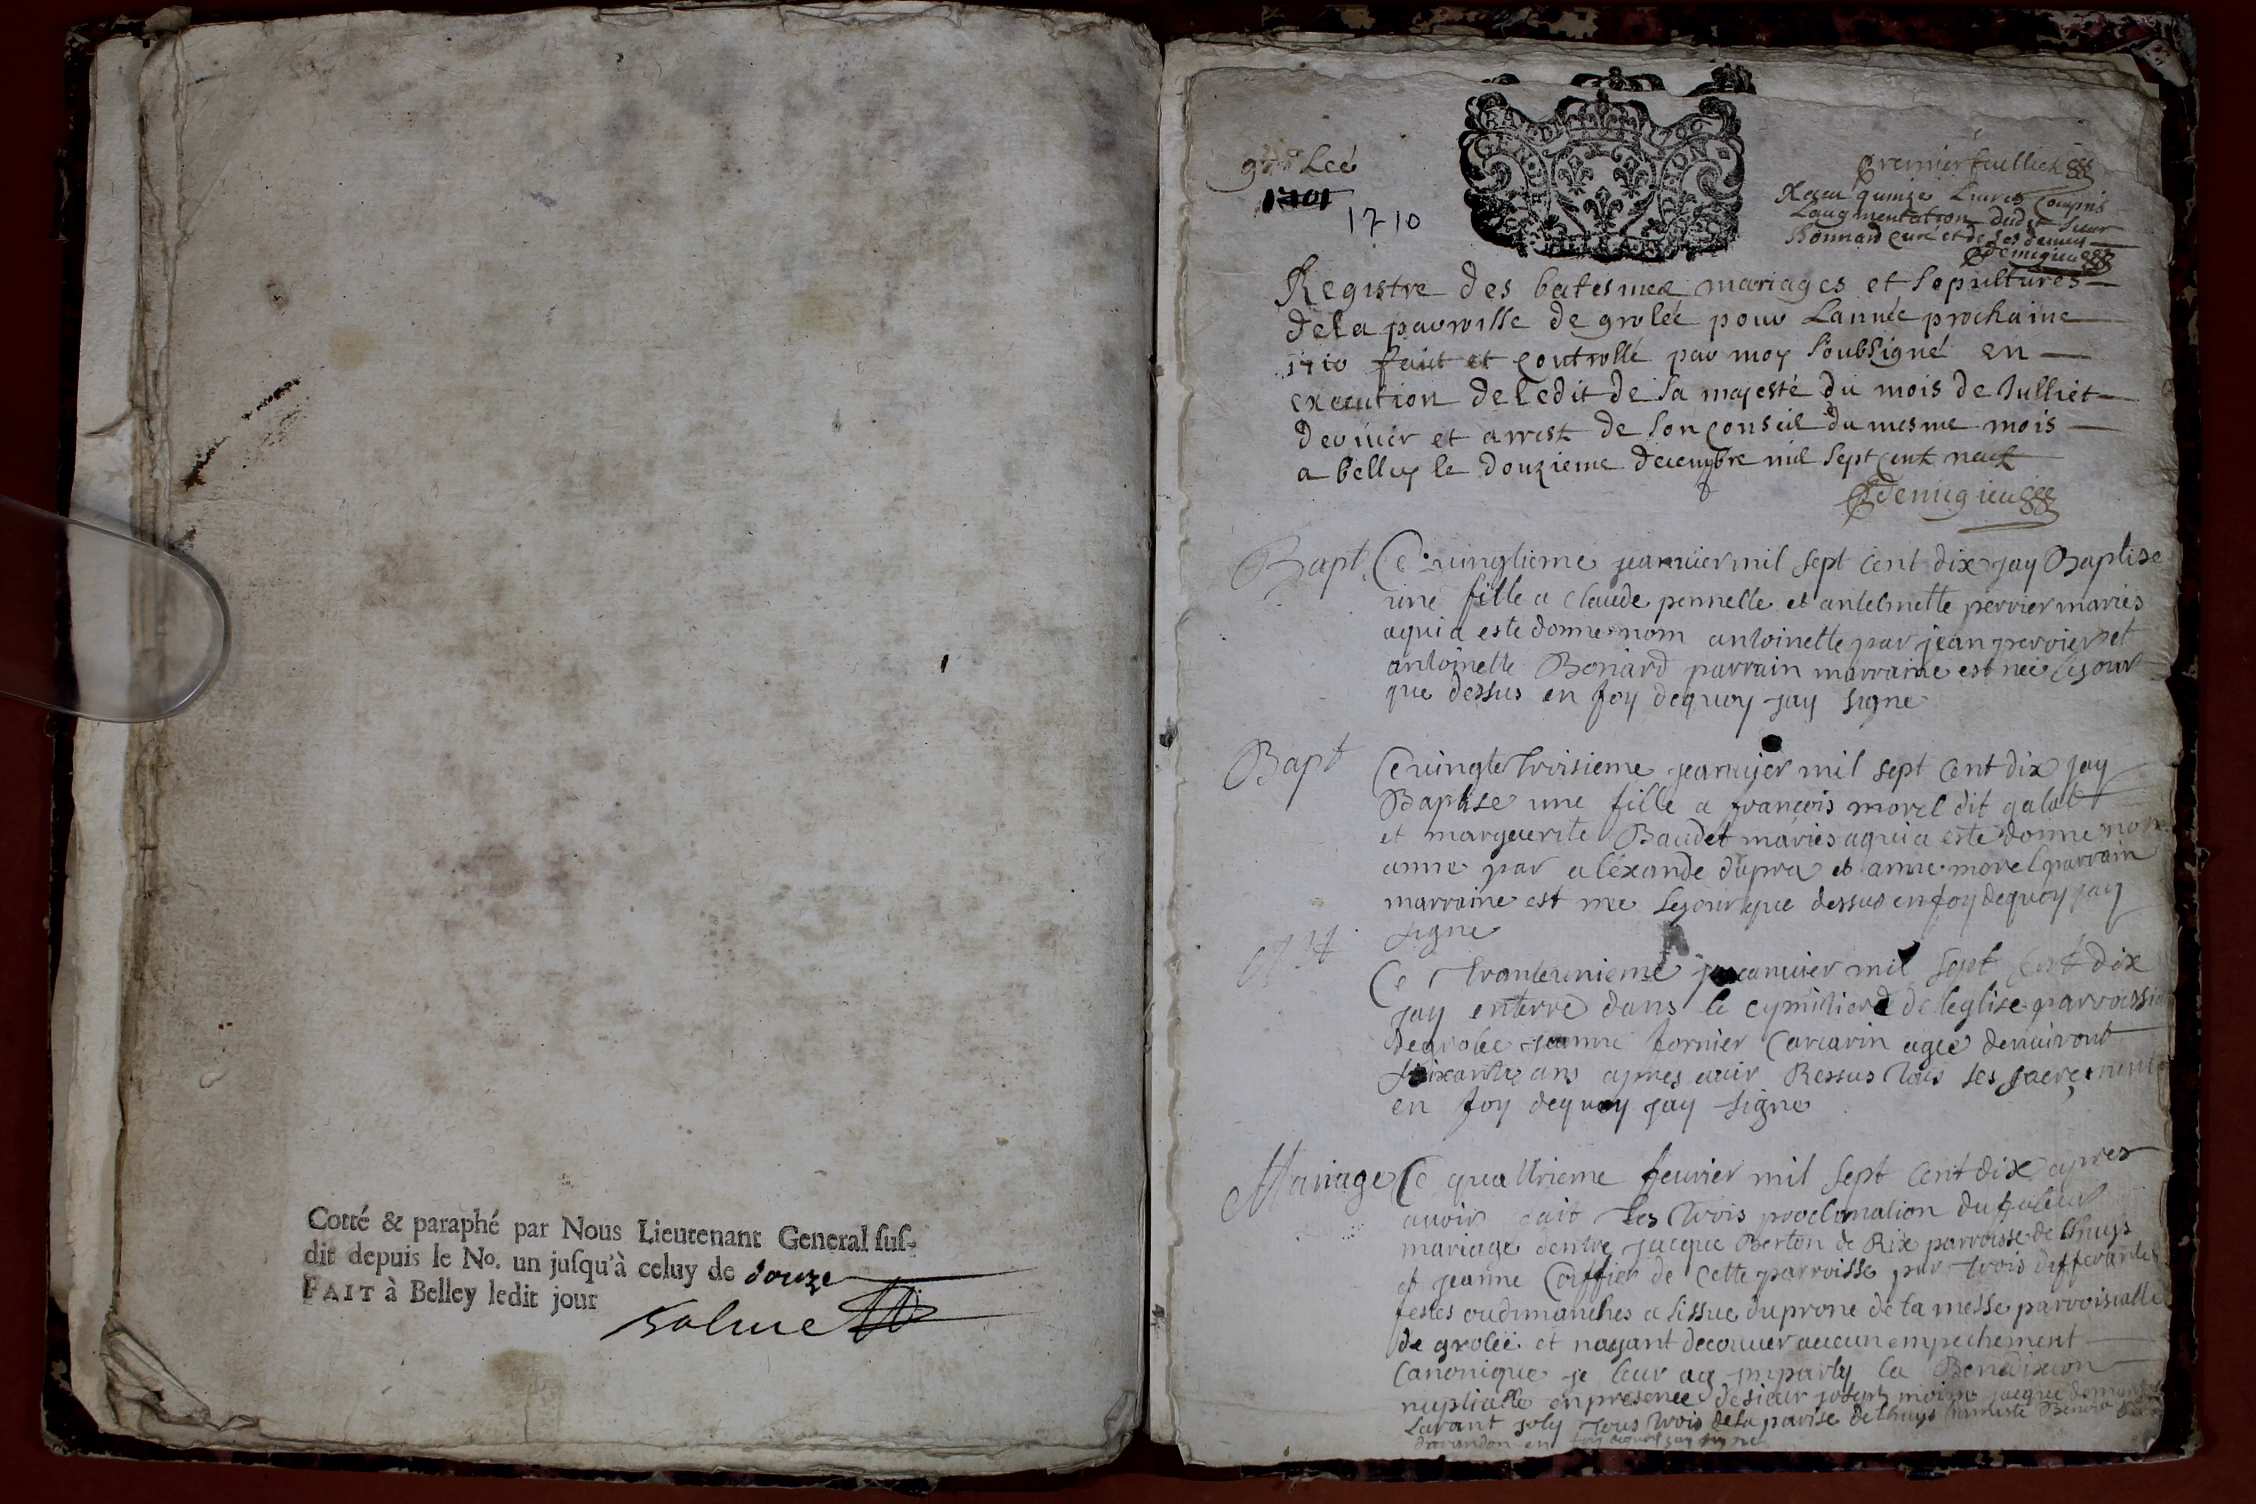 Cotté & paraphé par Nous Lieutenant General ſuſ-
dit depuis le No. un juſqu'à celuy de douze
FAIT à Belley ledit jour
grolée
1701
1710
premier feulliet
Receu quinze livres compris
Laugmentation dudit Sieur
Bonnard curé et de
Demigieu
Registre des batesmes mariages et sepultures
dela parroisse de grolée pour Lannée prochaine
1710 fait et controllé par moy soubsigné en
execution de Ledit de sa majesté du mois de Julliet
dernier et arrest de son conseil du mesme mois
a belley le douzieme decembre mil sept cent neuf
Demigieu
Bapt
Ce vingtieme jeanvier mil sept cent dix jay Baptise
une fille a claude pennelle et antelmette perrier maries
aqui a este donne nom antoinette par jean perrier et
antoinette Bonard parrain marraine est nee lejour
que dessus en foy dequoy jay signe
Bapt
Ce vingte troisieme jeanvier mil sept cent dix jay
Baptise une fille a francois morel dit galat
et marguerite Baudet maries aqui a este donne nom
anne par alexande dupra et anne morel parrain
marraine est nee lejour que dessus en foy dequoy jay
signe
Ce tranteunieme jeanvier mil sept cent dix
jay enterre dans le cymitiere de leglise parroissi
de grolee jeanne fornier Carcarin agee denviront
soixante ans apres avir Ressus tous ses sacrements
en foy dequoy jay signe
Mariage
Ce quattrieme feuvier mil sept cent dix apres
avoir fait les trois proclmation du futeur
mariage dentre jacque Berton de Rix parroisse de thuys
et jeanne Coiffier de cette parroisse par trois differantes
festes oudimanches a lissue du prone de la messe parroisialle
de grolée et nayant decouver aucun empechement
canonique je leur ay imparty la Benedixion
nuptialle en presence de sieur joseph moine jacque
Lurant joly tous trois de la paroise de thuys Benoit
en foy dequoy jay signe